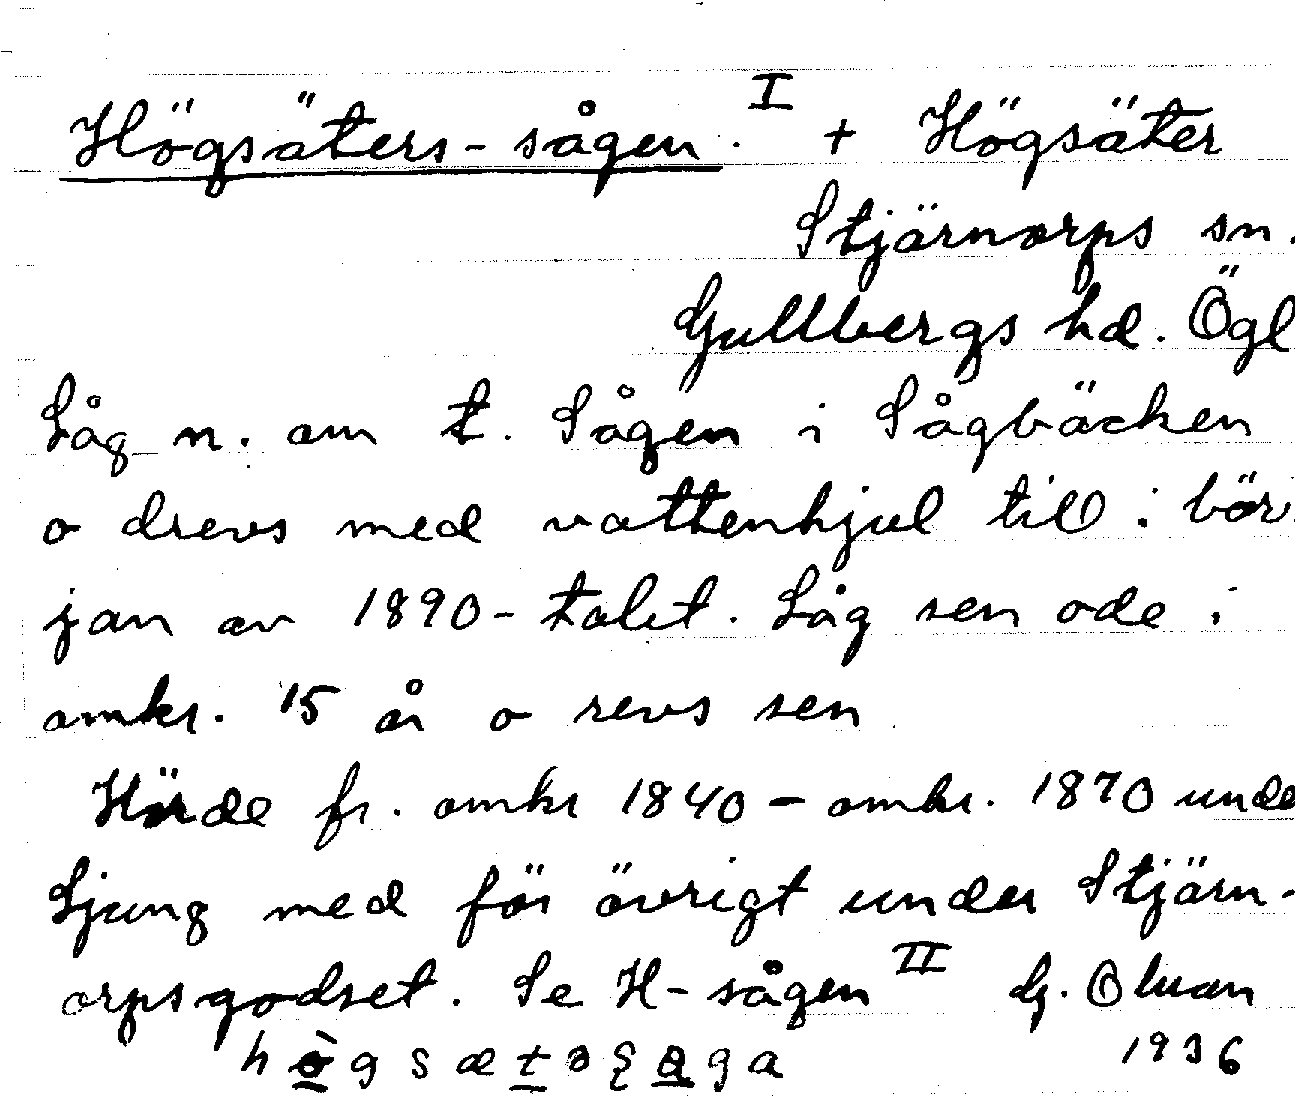 Högsäters-sågen. I + Högsäter
Stjärnorps sn.
Gullbergs hd. Ögl
Låg n. om t. Sågen i Sågbäcken
o drevs med vattenhjul till i bör
jan av 1890-talet. Låg sen öde i
omkr. 15 år o revs sen
Hörde fr. omkr 1840 - omkr. 1870 unde
Ljung med för övrigt under Stjärn-
orpsgodset. Se H-sågen II G.
1936